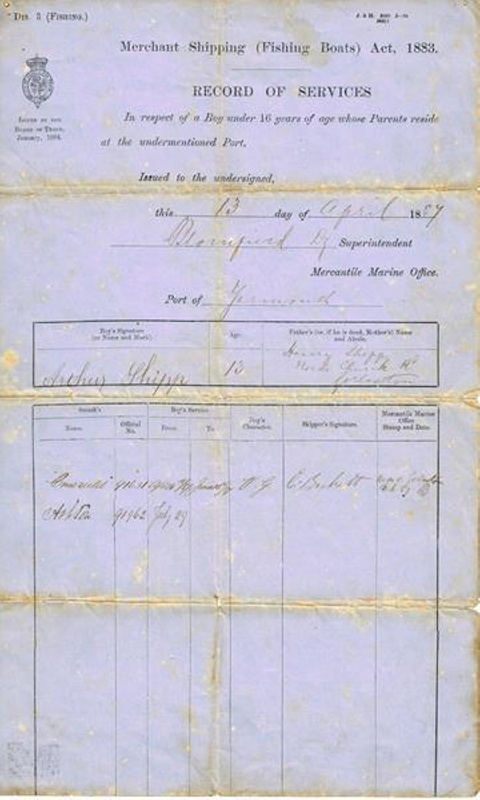 Dis. 3 (Fishing.)
Merchant Shipping (Fishing Boats) Act, 1883.
RECORD OF SERVICES
Issued by the
Board of Trade,
January, 1884.
In respect of a Boy under 16 years of age whose Parents reside
at the undermentioned Port.
Issued to the undersigned,
this 13 day of April 1887
Blomfield Dy Superintendent
Mercantile Marine Office.
Port of Yarmouth
Boy's Signature
(or Name and Mark).
Age.
Father's (or, if he is dead, Mother's) Name
and Abode.
Arthur Shipp
13
Henry Shipp
Church Rd
Gorleston
Smack's
Boy's Service
Boy's
Character.
Skipper's Signature.
Mercantile Marine
Office
Stamp and Date.
Name.
Official
No.
From
To
V G C. Beckett
Ashton 91962 July 29